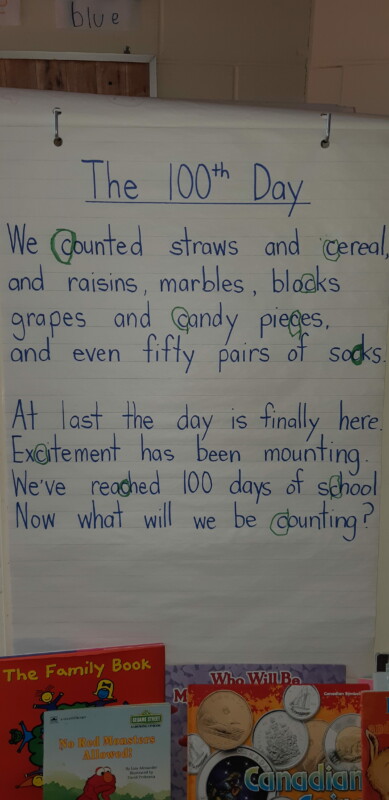 blue
The 100th Day
We counted straws and cereal,
and raisins, marbles, blocks
grapes and candy pieces,
and even fifty pairs of socks.
At last the day is finally here.
Excitement has been mounting.
We've reached 100 days of school
Now what will we be counting?
The Family Book
Who Will Be
SESAME STREET
No Red Monsters
Allowed!
Canadian